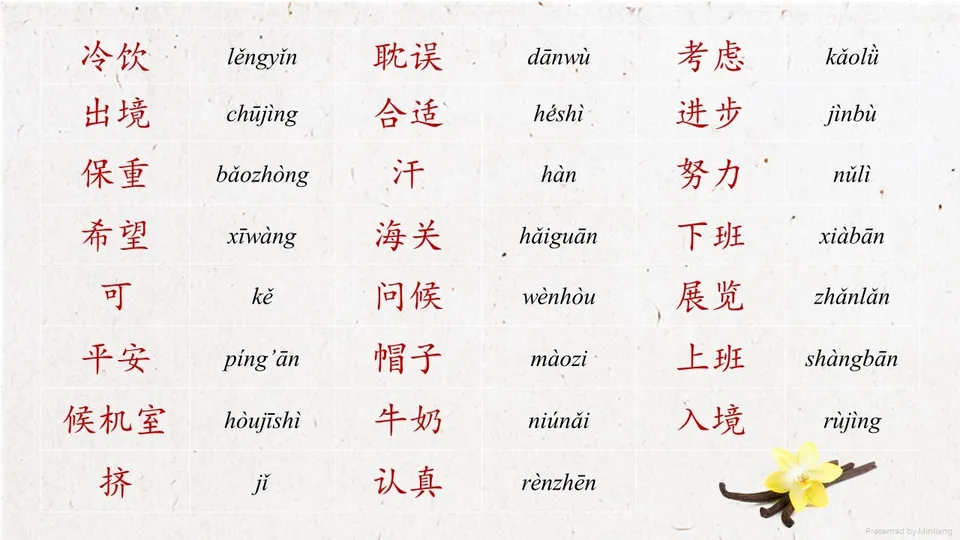 冷饮 lěngyǐn 耽误 dānwù 考虑 kǎolǜ
出境 chūjìng 合适 héshì 进步 jìnbù
保重 bǎozhòng 汗 hàn 努力 nǔlì
希望 xīwàng 海关 hǎiguān 下班 xiàbān
可 kě 问候 wènhòu 展览 zhǎnlǎn
平安 píng’ān 帽子 màozi 上班 shàngbān
候机室 hòujīshì 牛奶 niúnǎi 入境 rùjìng
挤 jǐ 认真 rènzhēn
Presented by Minliang